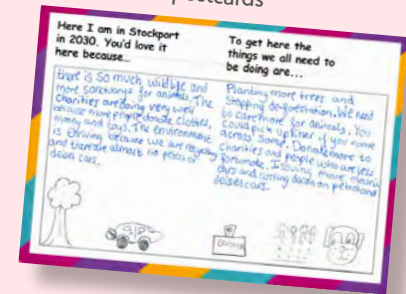 postcards
Here I am in Stockport
in 2030. You'd love it
here because...
there is so much wildlife and
more sanctuarys for animals. The
charities are doing very well
because more people donate clothes,
money and toys. The environment
is thriving because we are recycling
and there are almost no petrol or
diesel cars.
To get here the
things we all need to
be doing are...
Planting more trees and
stopping deforestation. We need
to care more for animals. You
could pick up litter if you come
across some. Donate more to
charities and people who are less
fortunate. Issuing more electric
cars and cutting down on petrol and
diesel cars.